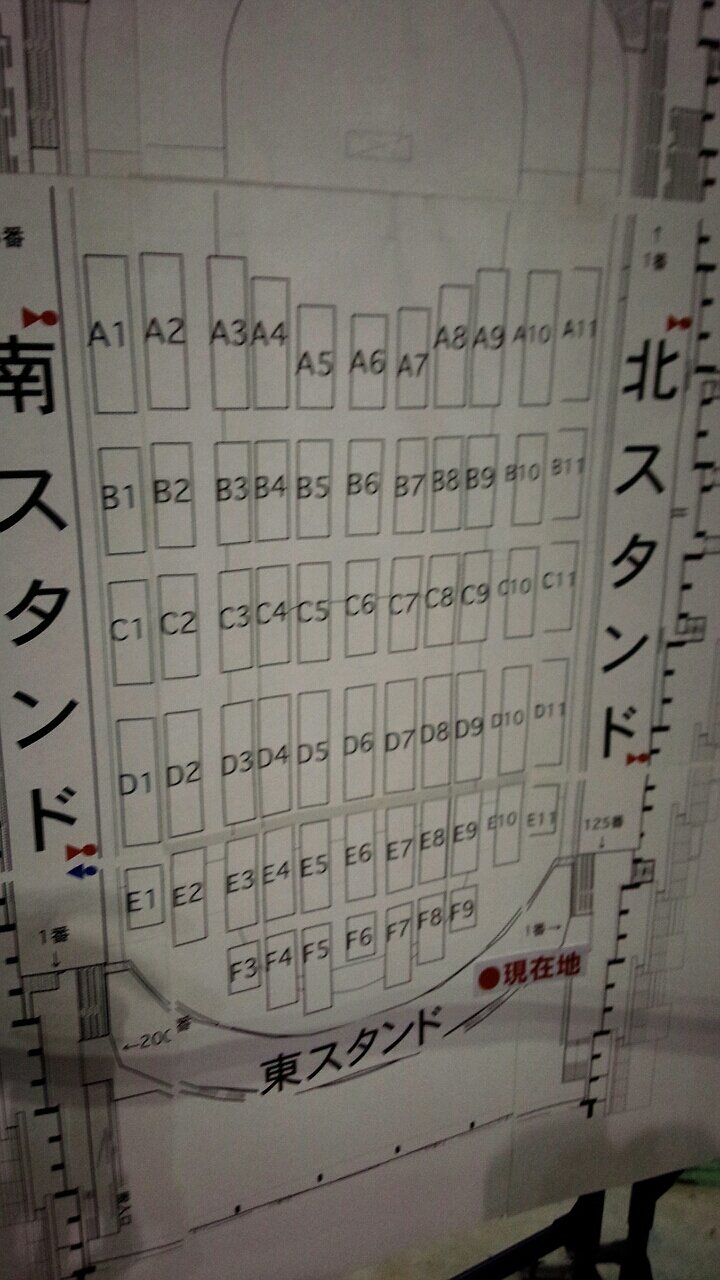 番
1番
A1 A2 A3 A4 A5 A6 A7 A8 A9 A10 A11
B1 B2 B3 B4 B5 B6 B7 B8 B9 B10 B11
C1 C2 C3 C4 C5 C6 C7 C8 C9 C10 C11
D1 D2 D3 D4 D5 D6 D7 D8 D9 D10 D11
E1 E2 E3 E4 E5 E6 E7 E8 E9 E10 E11
F3 F4 F5 F6 F7 F8 F9
南スタンド
北スタンド
125番
↓
1番
↓
1番→
現在地
←200番
東スタンド